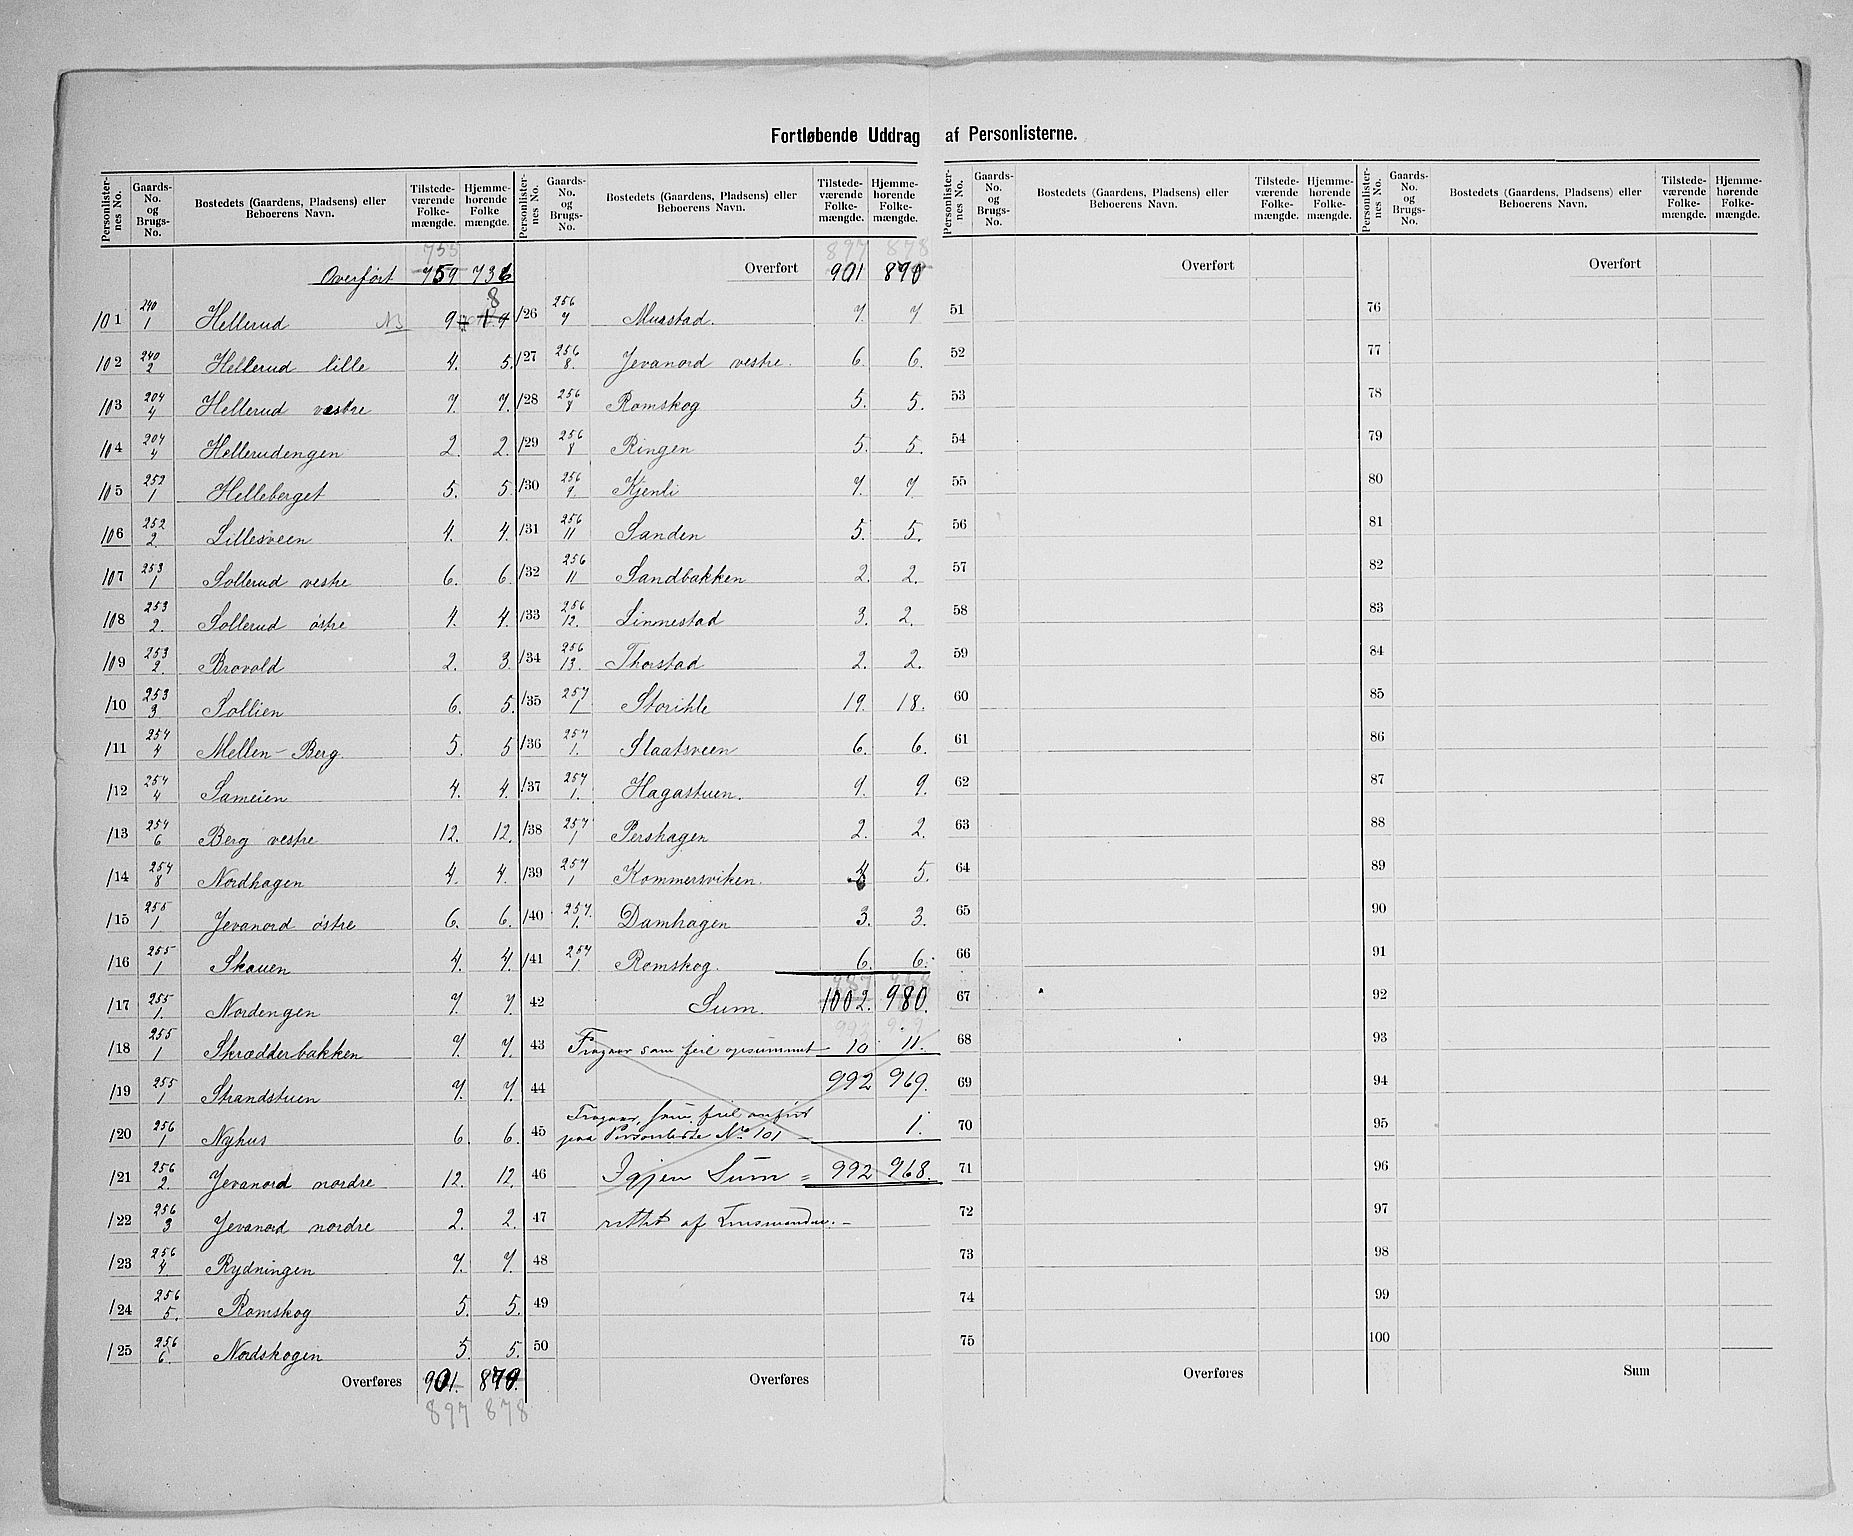 Fortløbende Uddrag af Personlisterne.
Personlisternes No. | Gaards-No. og Brugs-No. | Bostedets (Gaardens, Pladsens) eller Beboerens Navn. | Tilstedeværende Folkemængde. | Hjemmehørende Folkemængde.
753
Overført 759 736
101 240/1 Hellerud NB 9 8
102 240/2 Hellerud lille 4. 5.
103 204/4 Hellerud vestre 7. 7.
104 204/4 Hellerudengen 2. 2.
105 252/1 Helleberget 5. 5.
106 252/2. Lillesveen 4. 4.
107 253/1 Sollerud vestre 6. 6.
108 253/2. Sollerud østre 4. 4.
109 253/2. Brovold 2. 3.
110 253/3. Sollien 6. 5.
111 254/4 Mellen-Berg. 5. 5
112 254/4 Sameien 4. 4.
113 254/6 Berg vestre 12. 12.
114 254/8 Nordhagen 4. 4.
115 255/1 Jevanord østre 6. 6.
116 255/1 Skauen 4. 4.
117 255/1. Nordengen 7. 7.
118 255/1 Skrædderbakken 7. 7.
119 255/1 Strandstuen 7. 7.
120 256/1 Nyhus 6. 6.
121 256/2. Jevanord nordre 12. 12.
122 256/3 Jevanord nordre 2. 2.
123 256/4. Rydningen 7. 7.
124 256/5. Romskog 5. 5.
125 256/6. Nordskogen 5. 5.
Overføres 901. 879.
897 878
Personlisternes No. | Gaards-No. og Brugs-No. | Bostedets (Gaardens, Pladsens) eller Beboerens Navn. | Tilstedeværende Folkemængde. | Hjemmehørende Folkemængde.
897 878
Overført 901 890
126 256/7 Murstad. 7. 7
127 256/8. Jevanord vestre. 6. 6.
128 256/8 Romskog 5. 5.
129 256/8 Ringen 5. 5.
130 256/9. Kjenli 7. 7
131 256/11 Sanden 5. 5.
132 256/11 Sandbakken 2. 2.
133 256/12. Linnestad 3. 2.
134 256/13. Thorstad 2. 2.
135 257/1 Storihle 19. 18.
136 257/1. Slaatsveen 6. 6.
137 257/1. Hagastuen. 9. 9.
138 257/1 Pershagen 2. 2.
139 257/1 Kommersviken. 5.
140 257./1. Damhagen 3. 3.
141 257/1. Romskog. 6. 6.
987 968
42 Sum. 1002. 980.
43 Fragaar som feil opsummet 10 11.
44 992 969.
45 Fragaar, som feil anført
paa Personliste No 101 1.
46 Igjen Sum = 992 968.
47 rettet af Lensmanden. -
48
49
50
Overføres
Personlisternes No. | Gaards-No. og Brugs-No. | Bostedets (Gaardens, Pladsens) eller Beboerens Navn. | Tilstedeværende Folkemængde. | Hjemmehørende Folkemængde.
Overført
51
52
53
54
55
56
57
58
59
60
61
62
63
64
65
66
67
68
69
70
71
72
73
74
75
Overføres
Personlisternes No. | Gaards-No. og Brugs-No. | Bostedets (Gaardens, Pladsens) eller Beboerens Navn. | Tilstedeværende Folkemængde. | Hjemmehørende Folkemængde.
Overført
76
77
78
79
80
81
82
83
84
85
86
87
88
89
90
91
92
93
94
95
96
97
98
99
100
Sum